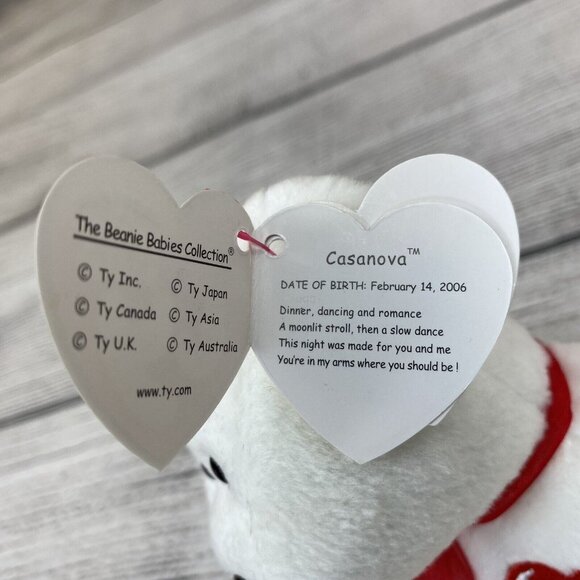 The Beanie Babies Collection®
© Ty Inc.
© Ty Japan
© Ty Canada
© Ty Asia
© Ty U.K.
© Ty Australia
www.ty.com
Casanova™
DATE OF BIRTH: February 14, 2006
Dinner, dancing and romance
A moonlit stroll, then a slow dance
This night was made for you and me
You're in my arms where you should be !